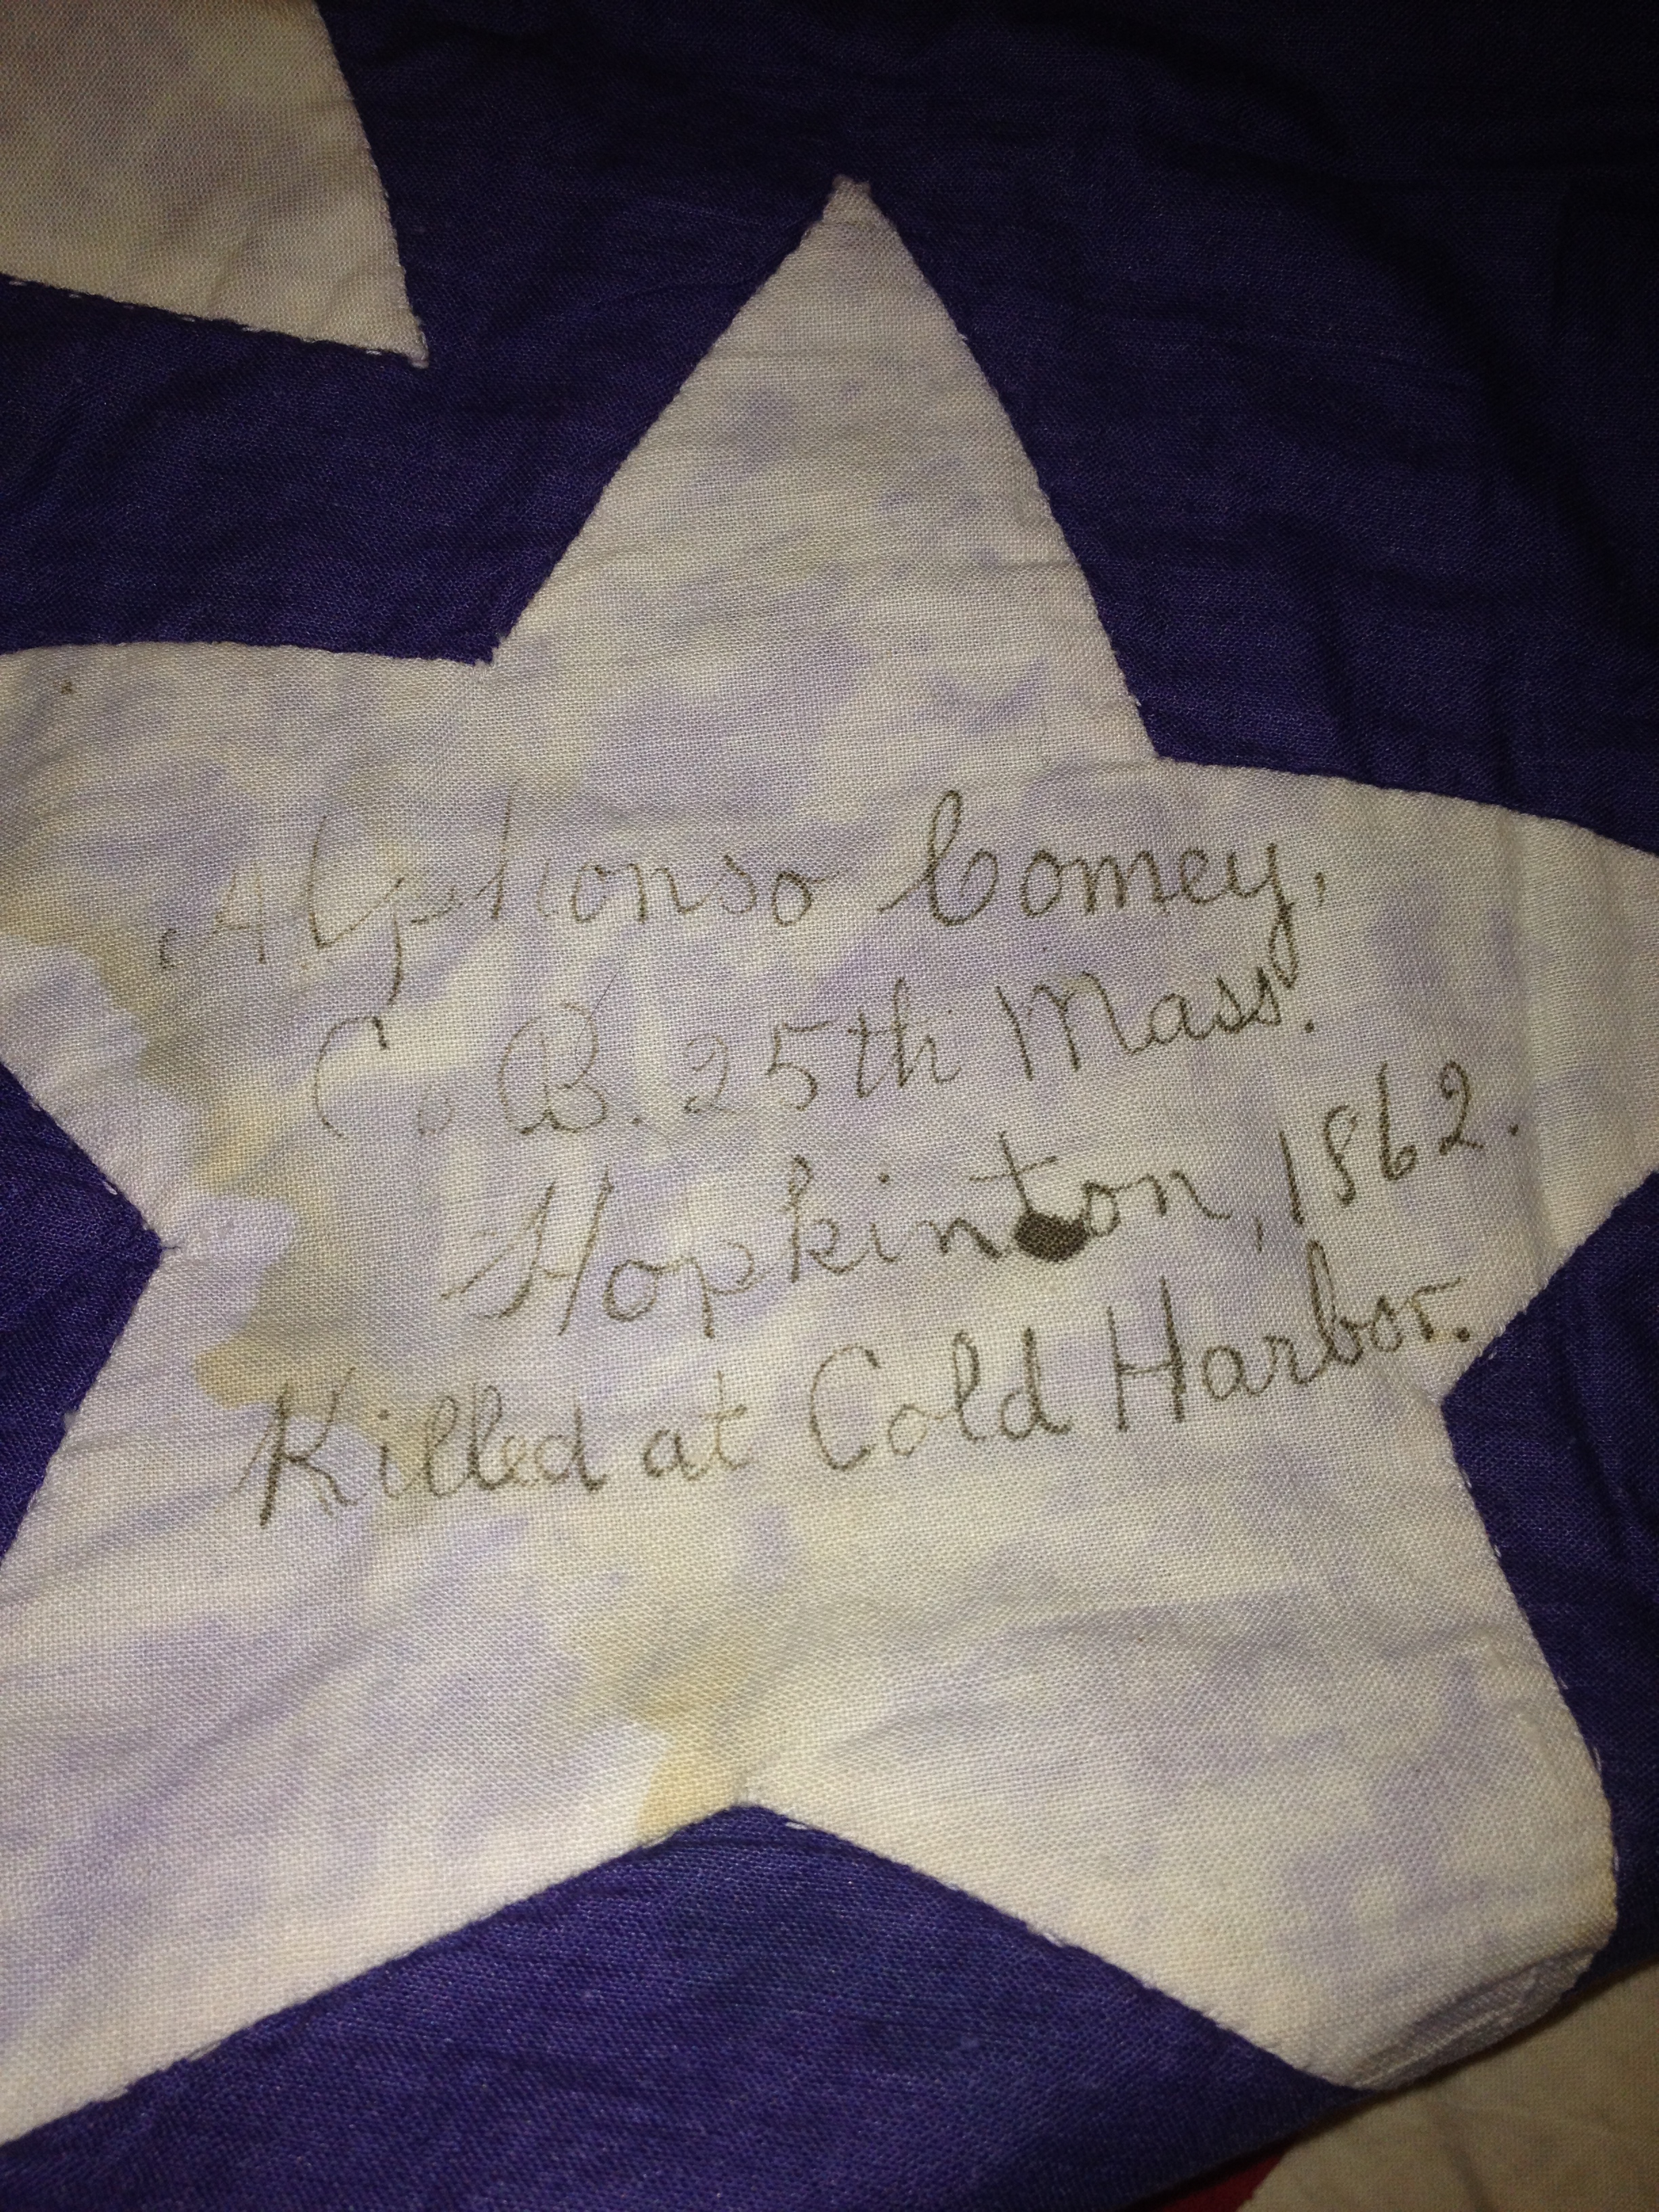 Alphonso Comey,
Co. B. 25th Mass.
Hopkinton, 1862.
Killed at Cold Harbor.